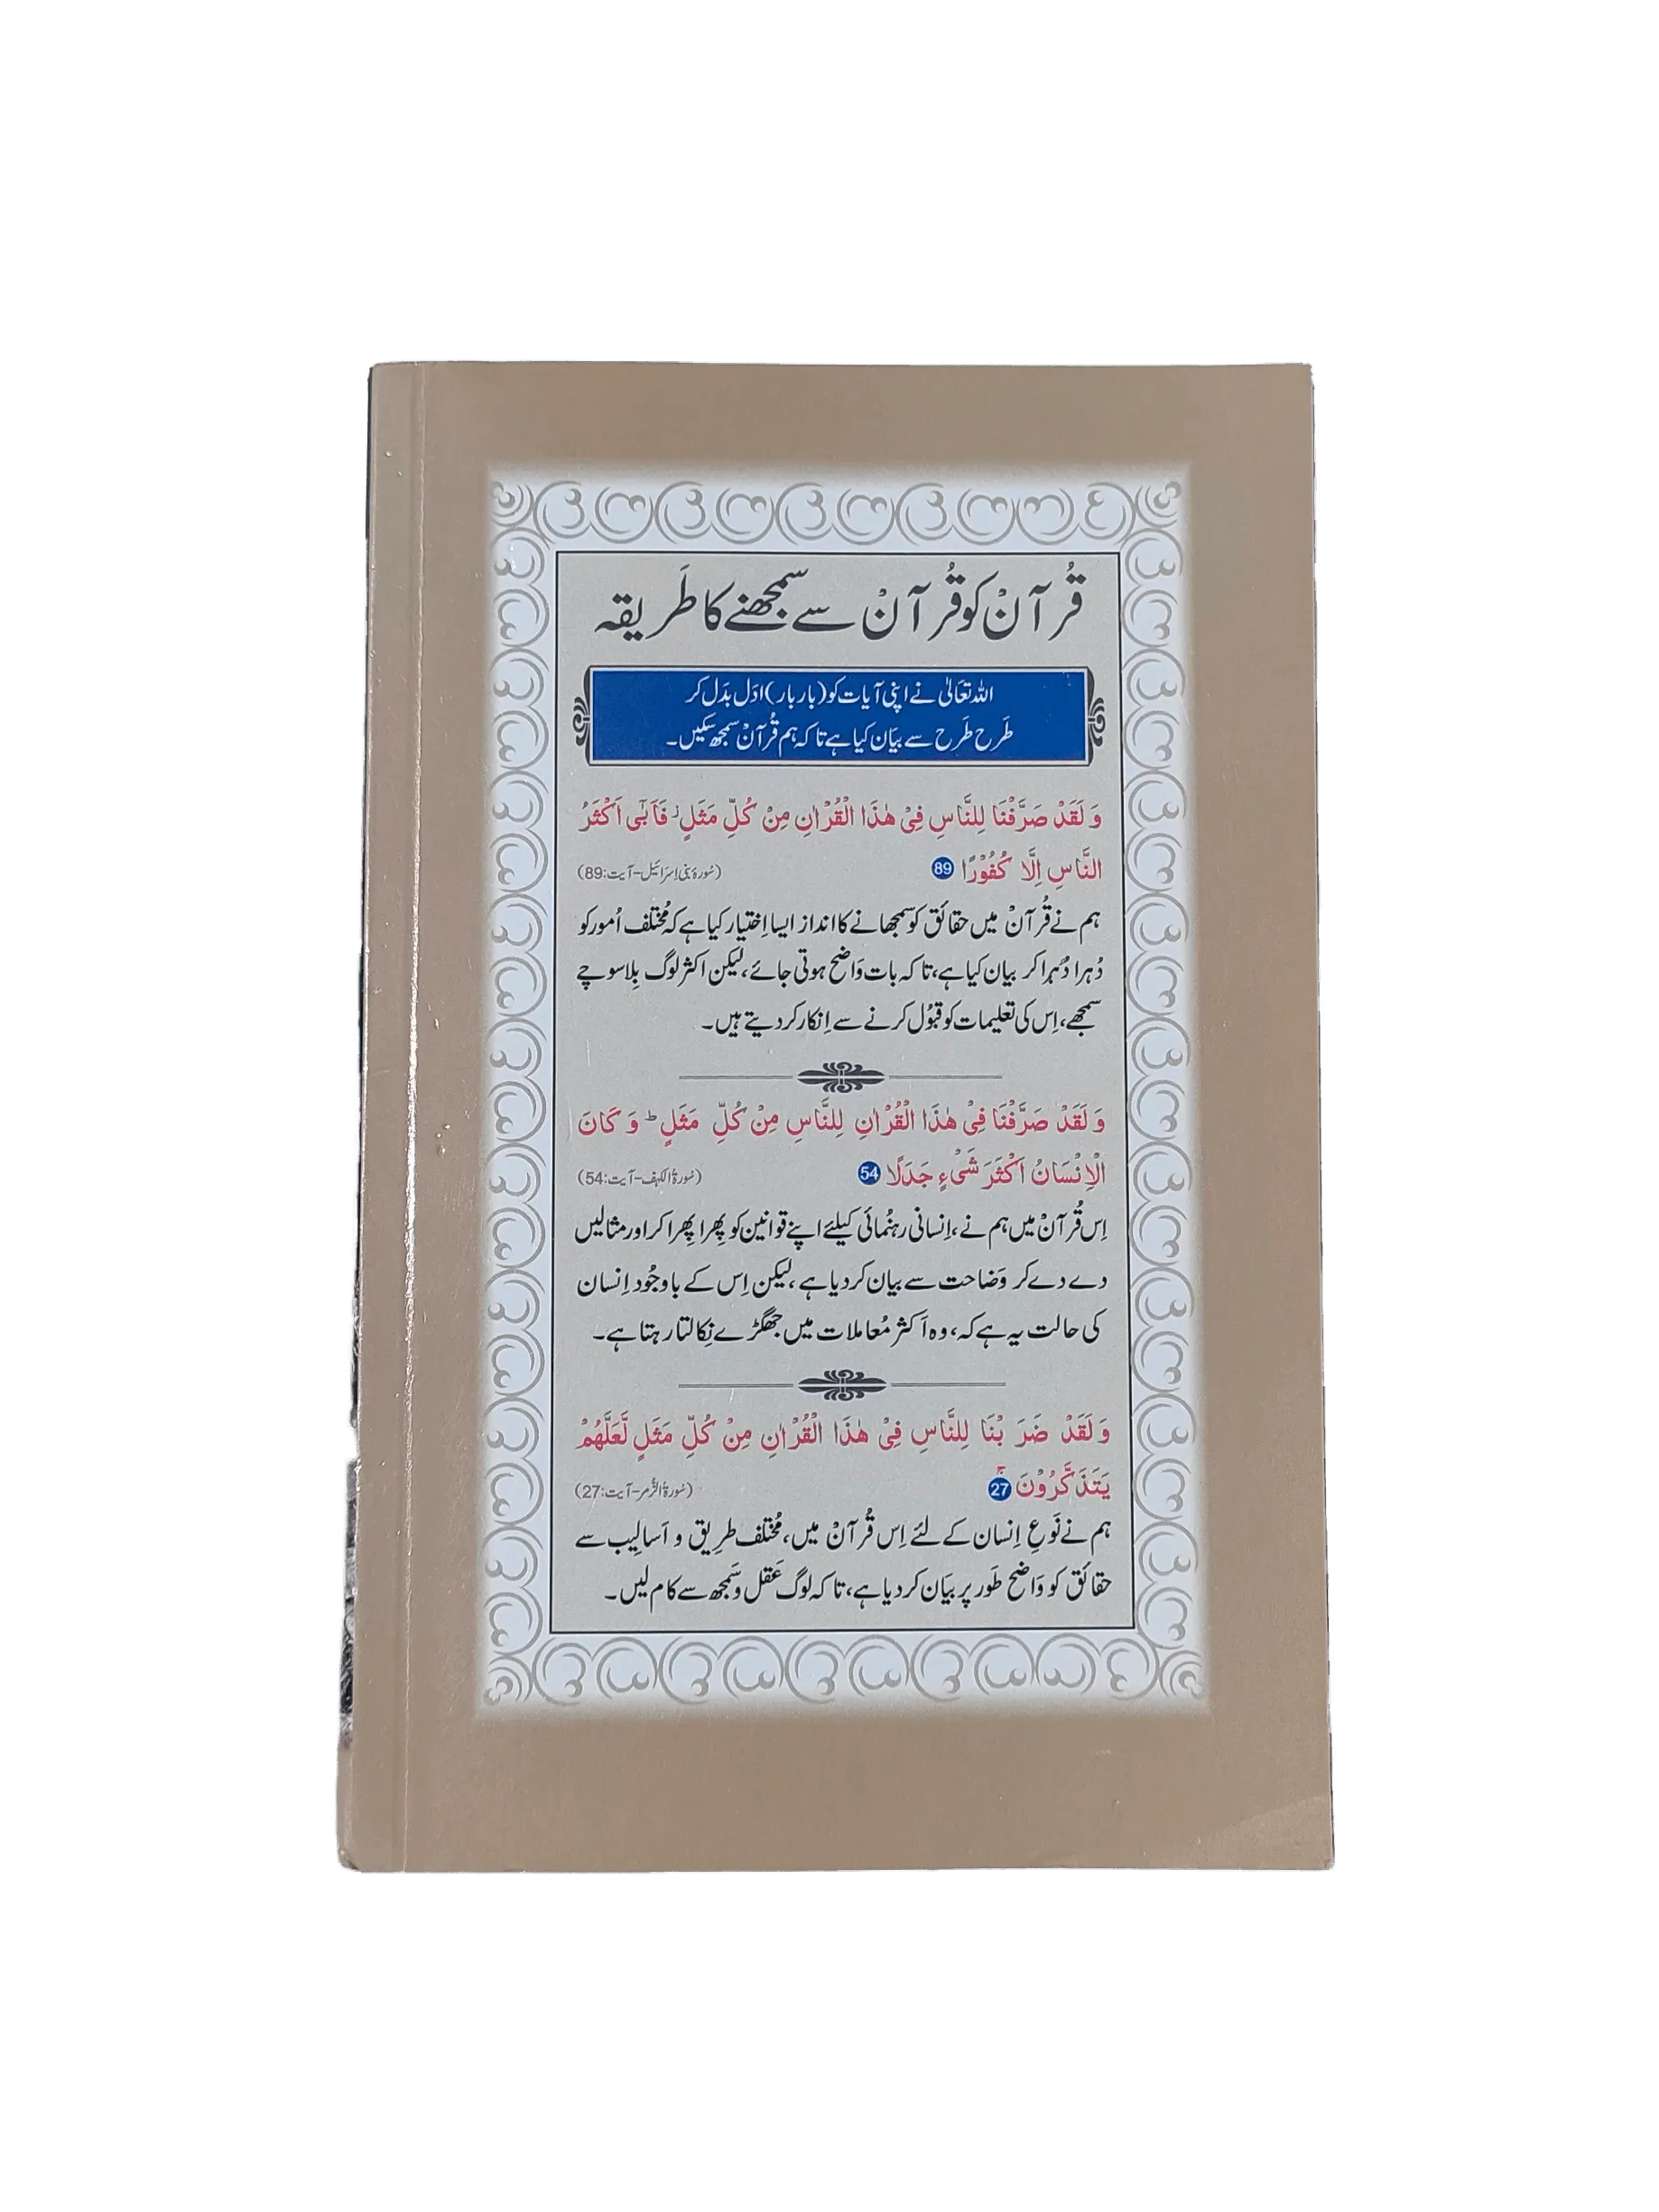 قُرآنْ کو قُرآنْ سے سمجھنے کا طَریقہ
اللہ تعَالیٰ نے اپنی آیات کو (بار بار) ادَل بدَل کر
طَرح طَرح سے بیَان کیا ہے تا کہ ہم قُرآنْ سمجھ سکیں۔
وَ لَقَدْ صَرَّفْنَا لِلنَّاسِ فِیْ هٰذَا الْقُرْاٰنِ مِنْ كُلِّ مَثَلٍ ؗ فَاَبٰۤی اَكْثَرُ
النَّاسِ اِلَّا كُفُوْرًا 89 (سُورۂ بنی اِسرَائیل-آیت:89)
ہم نے قُرآنْ میں حقائق کو سمجھانے کا انداز ایسا اِختیار کیا ہے کہ مُختلف اُمور کو
دُہرا دُہرا کر بیان کیا ہے، تا کہ بات وَاضح ہوتی جائے، لیکن اکثر لوگ بِلا سوچے
سمجھے، اِس کی تعلیمات کو قبُول کرنے سے اِنکار کر دیتے ہیں۔
وَ لَقَدْ صَرَّفْنَا فِیْ هٰذَا الْقُرْاٰنِ لِلنَّاسِ مِنْ كُلِّ مَثَلٍ ؕ وَ كَانَ
الْاِنْسَانُ اَكْثَرَ شَیْءٍ جَدَلًا 54 (سُورۃُ الکہف-آیت:54)
اِس قُرآنْ میں ہم نے، اِنسانی رہنُمائی کیلئے اپنے قوانین کو پِھرا پِھرا کر اور مثالیں
دے دے کر وَضاحت سے بیان کر دیا ہے، لیکن اِس کے باوجُود اِنسان
کی حالت یہ ہے کہ، وہ اَکثر مُعاملات میں جھگڑے نِکالتا رہتا ہے۔
وَ لَقَدْ ضَرَبْنَا لِلنَّاسِ فِیْ هٰذَا الْقُرْاٰنِ مِنْ كُلِّ مَثَلٍ لَّعَلَّهُمْ
یَتَذَكَّرُوْنَ ۚ 27 (سُورۃُ الزُّمر-آیت:27)
ہم نے نَوعِ اِنسان کے لئے اِس قُرآنْ میں، مُختلف طرِیق و اَسالِیب سے
حقائق کو وَاضح طَور پر بیَان کر دیا ہے، تا کہ لوگ عَقل و سَمجھ سے کام لیں۔